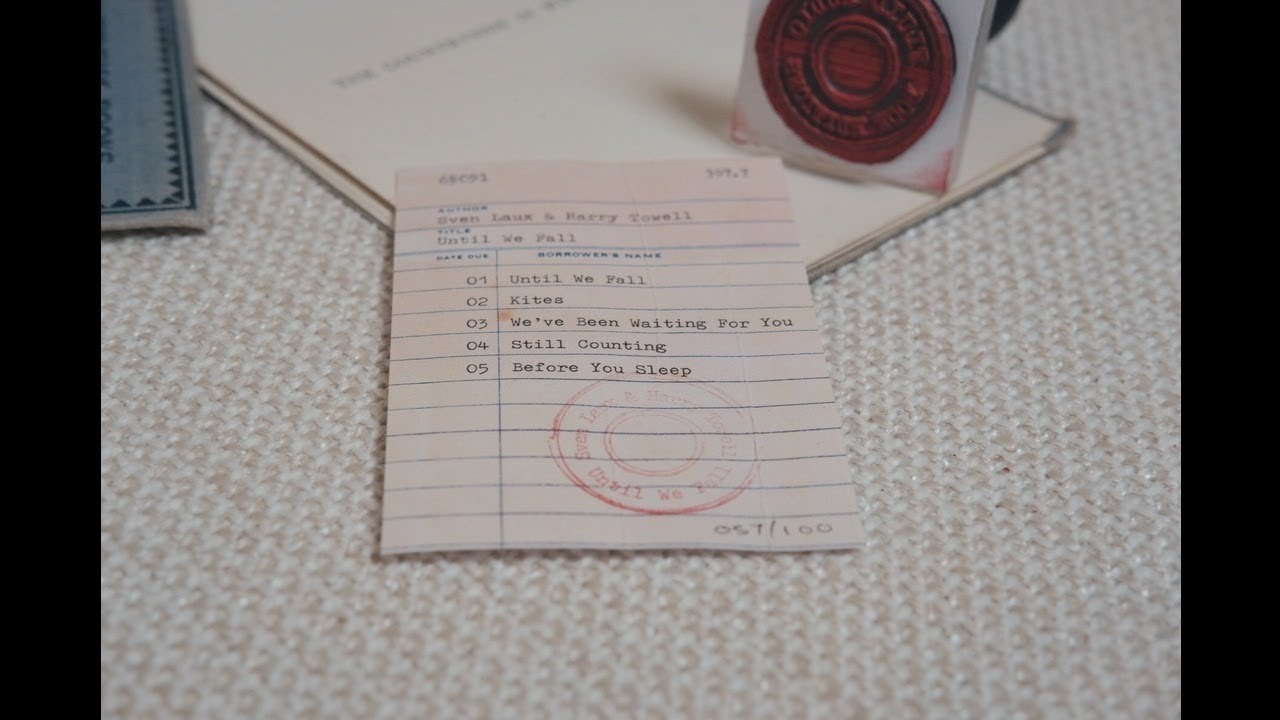 68C91 397.7
AUTHOR
Sven Laux & Harry Towell
TITLE
Until We Fall
DATE DUE BORROWER'S NAME
01 Until We Fall
02 Kites
03 We've Been Waiting For You
04 Still Counting
05 Before You Sleep
Sven Laux & Harry Towell
Until We Fall
057/100